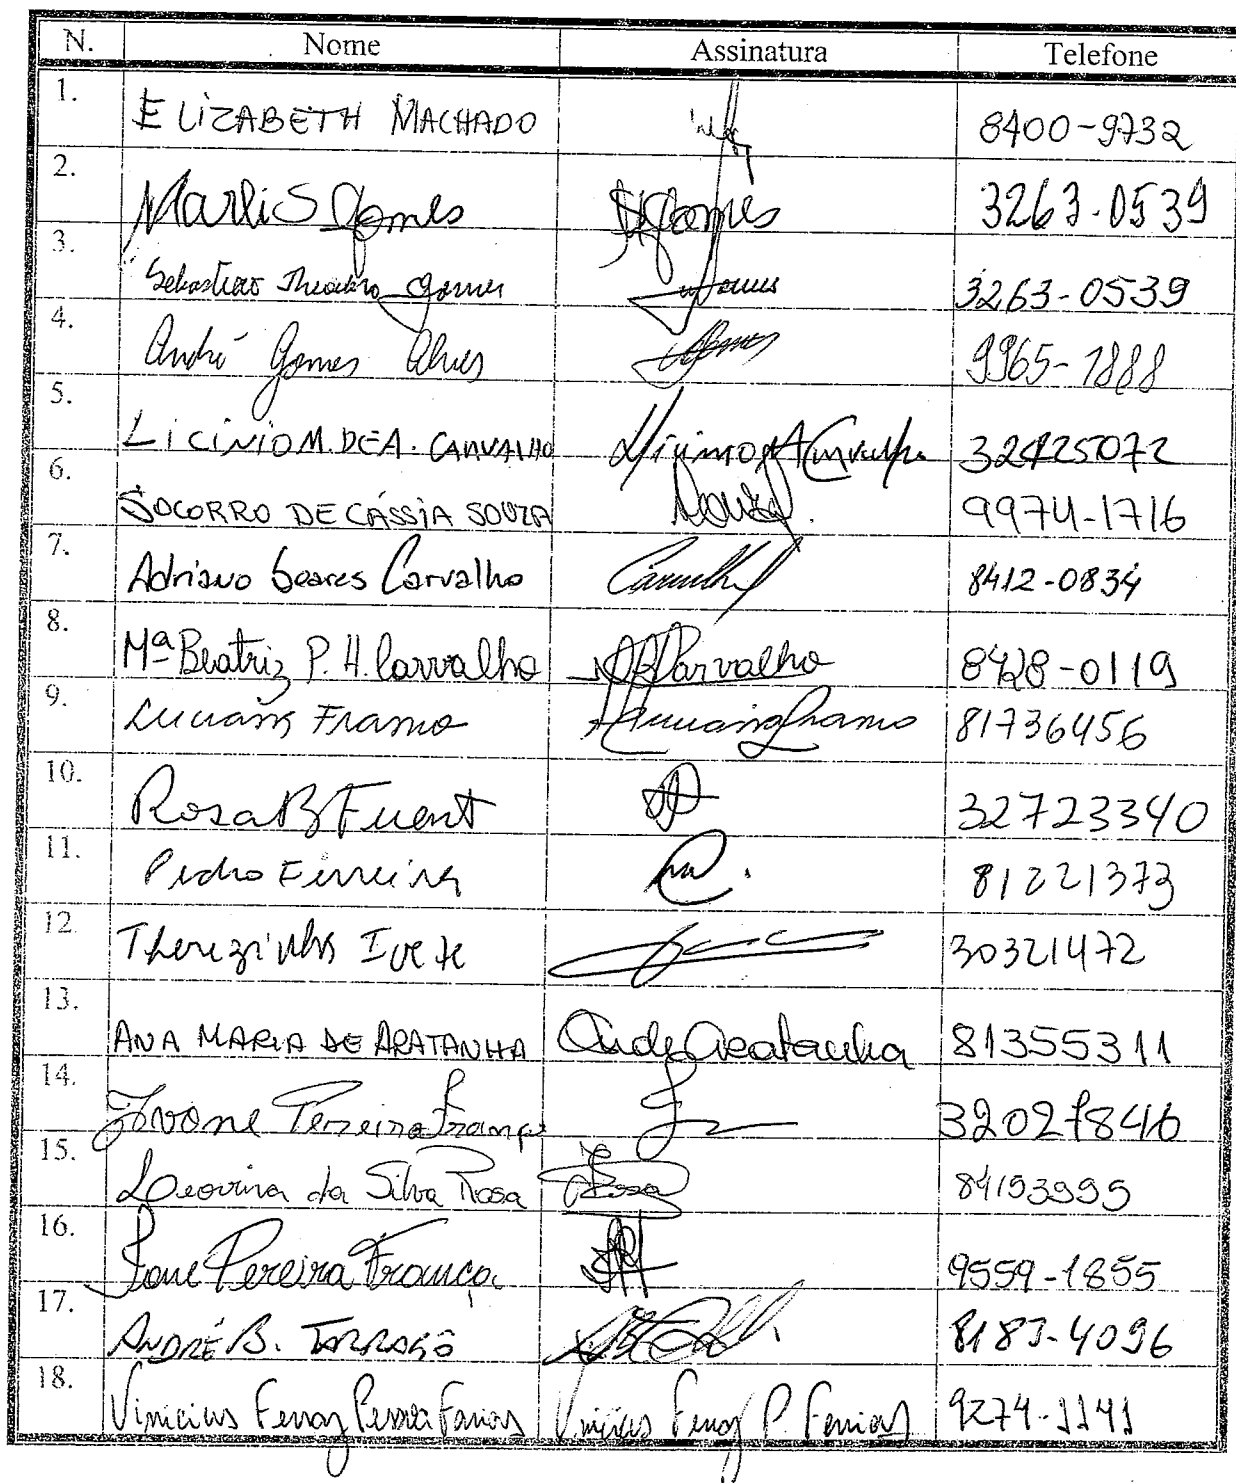 N. Nome Assinatura Telefone
1. ELIZABETH MACHADO 8400-9732
2. Marli S Gomes Gomes 3263-0539
3. Sebastião Theodoro Gomes Gomes 3263-0539
4. André Gomes Alves Gomes 9965-1888
5. LICINIO M. DE A. CARVALHO Licinio A Carvalho 32425072
6. SOCORRO DE CÁSSIA SOUZA Souza. 9974-1716
7. Adriano Soares Carvalho Carvalho 8412-0834
8. Mª Beatriz P. H. Carvalho Carvalho 8428-0119
9. Luciana Framo Luciana Framo 81736456
10. Rosa B Fuent 32723340
11. Pedro Ferreira 81221373
12. Therezinha Ivete 30321472
13. ANA MARIA DE ARATANHA Aratanha 81355311
14. Ivone Pereira França 32027846
15. Leovina da Silva Rosa Rosa 84193995
16. Ione Pereira França 9559-1855
17. ANDRÉ B. TARRAGÔ 8183-4096
18. Vinicius Ferraz Farias Vinicius P. 9274-1141